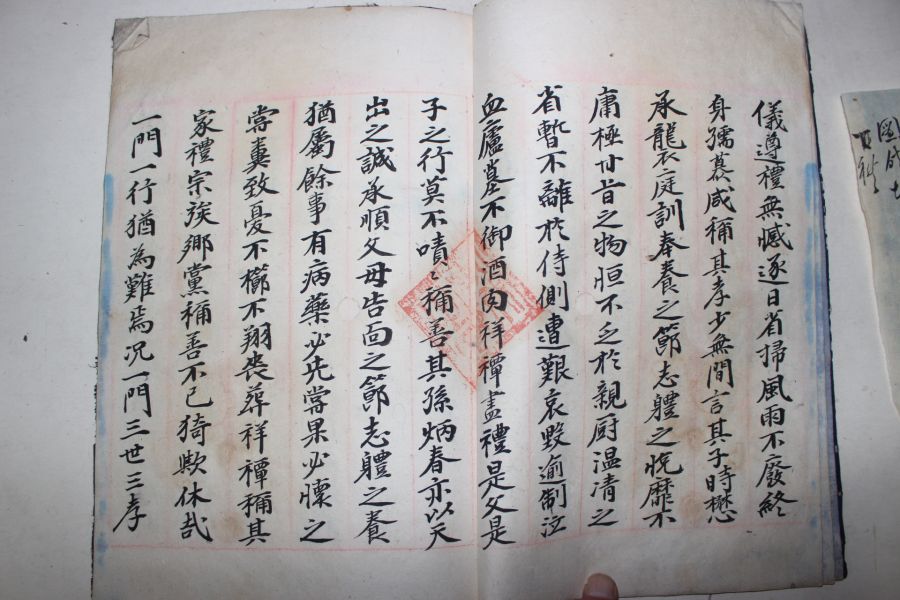 儀遵禮無憾逐日省掃風雨不廢終
身孺慕咸稱其孝少無間言其子時懋
承襲庭訓奉養之節志軆之悅靡不
庸極甘旨之物恒不乏於親厨温凊之
省暫不離於侍側遭艱哀毁逾制泣
血廬墓不御酒肉祥禫盡禮是父是
子之行莫不嘖〻稱善其孫炳春亦以天
出之誠承順父母告面之節志軆之養
猶屬餘事有病藥必先嘗果必懷之
嘗糞致憂不櫛不翔喪葬祥禫稱其
家禮宗族鄉黨稱善不已猗歟休哉
一門一行猶為難焉况一門三世三孝